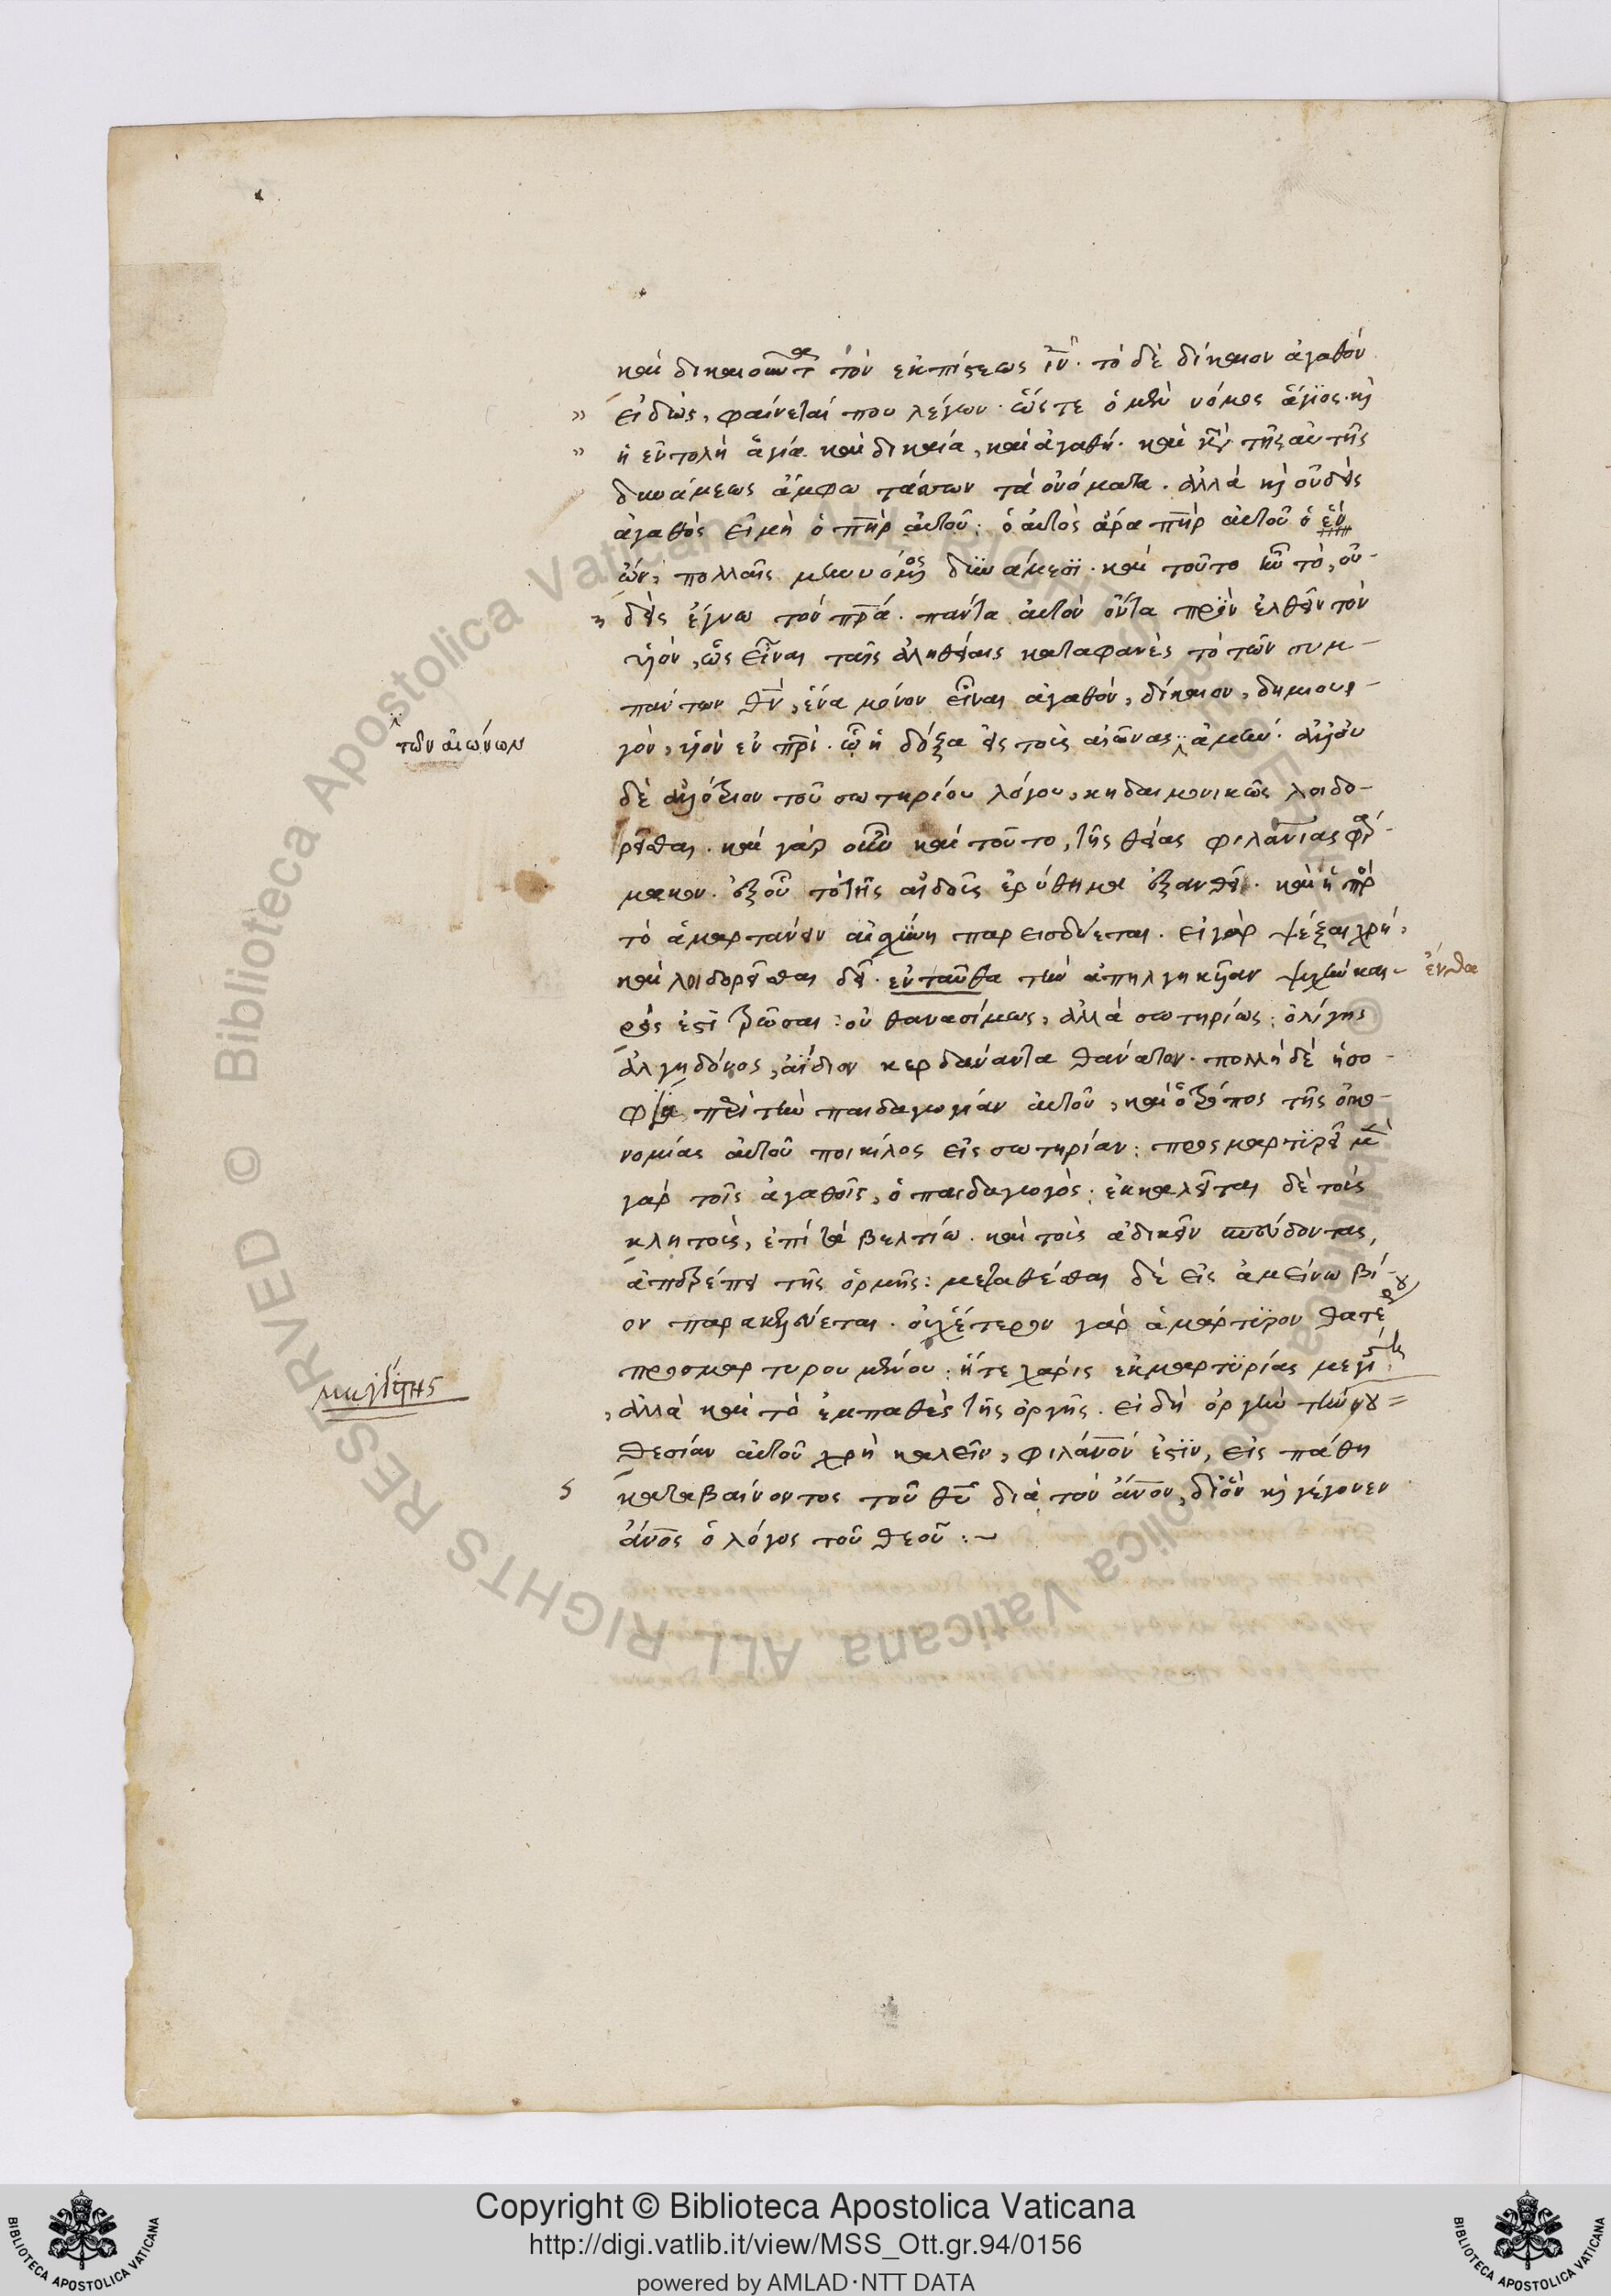 καὶ δικαιοῦντα τὸν ἐκ πίστεως ἰῦν. τὸ δὲ δίκαιον ἀγαθὸν
εἰδὼς, φαίνεταί που λέγων. ὥστε ὁ μὲν νόμος ἅγιος. κὶ
ἡ ἐντολὴ ἁγία καὶ δικαία, καὶ ἀγαθή. καὶ τῆς αὐτῆς
δυνάμεως ἄμφω τάττων τὰ ὀνόματα. ἀλλὰ κὶ οὐδεὶς
ἀγαθὸς εἰ μὴ ὁ πηρ αὐτοῦ: ὁ αὐτὸς ἄρα πηρ αὐτοῦ ὁ ἓν
ὢν, πολλαῖς μηνυόμενος δυνάμεσι. καὶ τοῦτο ἦν τὸ, οὐ-
δεὶς ἔγνω τὸν πρα. πάντα αὐτὸν ὄντα πρὶν ἐλθεῖν τὸν
υἱὸν, ὡς εἶναι ταῖς ἀληθείαις καταφανὲς τὸ τῶν συμ-
πάντων θν, ἕνα μόνον εἶναι ἀγαθὸν, δίκαιον, δημιουρ-
γὸν, υἱὸν ἐν πρι. ᾧ ἡ δόξα εἰς τοὺς αἰῶνας ἀμήν. ἀλλ' οὐ
τῶν αἰώνων
δὲ ἀνάξιον τοῦ σωτηρίου λόγου, κηδαιμονικῶς λοιδο-
ρεῖσθαι. καὶ γὰρ οὖν καὶ τοῦτο, τῆς θείας φιλανιας φάρ-
μακον. ἐξ οὗ τὸ τῆς αἰδοῦς ἐρύθημα ἐξανθεῖ. καὶ ἡ πρ
τὸ ἁμαρτάνειν αἰσχύνη παρεισδύεται. εἰ γὰρ ψέξαι χρή,
καὶ λοιδορεῖσθαι δεῖ. ἐνταῦθα τὴν ἀπηλγηκυῖαν ψυχὴν και-
ἔνθα
ρός ἐστι τρῶσαι: οὐ θανασίμως, ἀλλὰ σωτηρίως: ὀλίγης
ἀλγηδόνος, ἀΐδιον κερδάναντα θάνατον. πολλὴ δὲ ἡ σο-
φία περὶ τὴν παιδαγωγίαν αὐτοῦ, καὶ ὁ τρόπος τῆς οἰκο-
νομίας αὐτοῦ ποικίλος εἰς σωτηρίαν: προσμαρτυρεῖ μὲν
γὰρ τοῖς ἀγαθοῖς, ὁ παιδαγωγός: ἐκκαλεῖται δὲ τοὺς
κλητοὺς, ἐπὶ τὰ βελτίω. καὶ τοὺς ἀδικεῖν σπεύδοντας,
ἀποτρέπει τῆς ὁρμῆς: μεταθέσθαι δὲ εἰς ἀμείνω βί-
ον παρακελεύεται. οὐχ ἕτερον γὰρ ἀμάρτυρον θατέρου
προσμαρτυρουμένου: ἥ τε χάρις ἐκ μαρτυρίας μεγίστη.
μεγίστης
ἀλλὰ καὶ τὸ ἐμπαθὲς τῆς ὀργῆς. εἰ δὴ ὀργὴν τὴν νου=
θεσίαν αὐτοῦ χρὴ καλεῖν, φιλάνον ἐστιν, εἰς πάθη
καταβαίνοντος τοῦ θυ διὰ τὸν ἄνον, δι' ὃν κὶ γέγονεν
ἄνος ὁ λόγος τοῦ θεοῦ:~
Copyright © Biblioteca Apostolica Vaticana
http://digi.vatlib.it/view/MSS_Ott.gr.94/0156
powered by AMLAD·NTT DATA